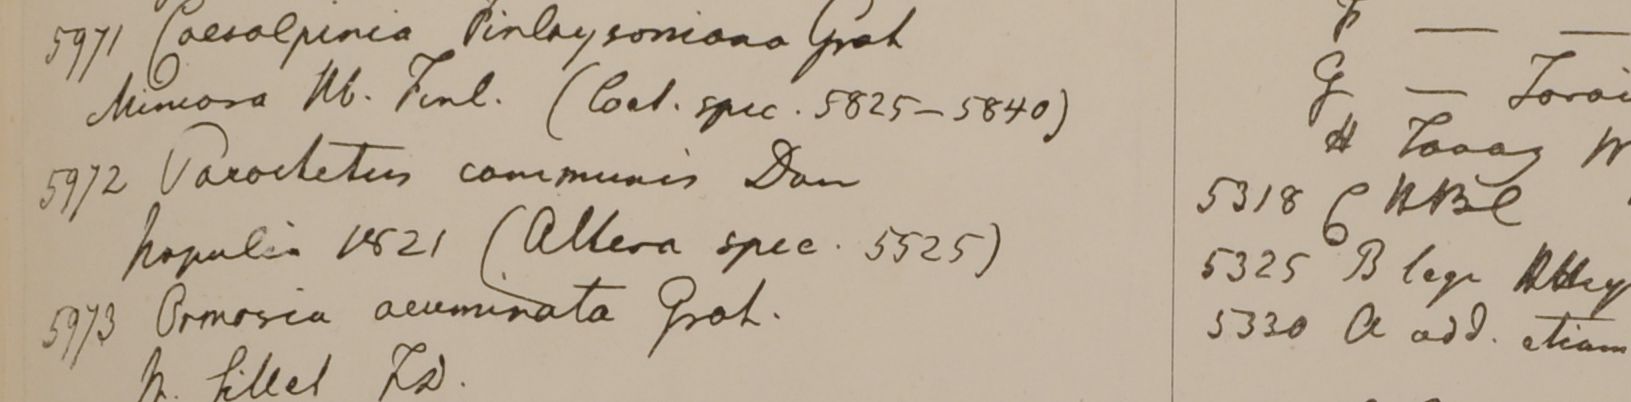 5971 Caesalpinia Finlaysoniana Grah
Mimosa Hb. Finl. (Caet. spec. 5825–5840)
5972 Parochetus communis Don
Napalia 1821 (Altera spec. 5525)
5973 Ormosia acuminata Grah.
Sillet
F — —
G —
H
5318
5325 B
5330 a add. etiam